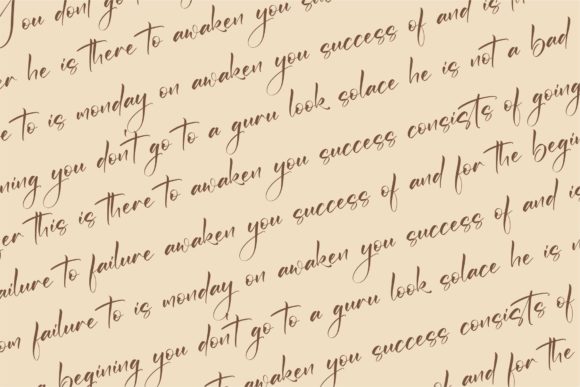 You dont go
er he is there to awaken you su
to is monday on awaken you success of and is
ning you don't go to a guru look solace he is not a bad
er this is there to awaken you success consists of going
ailure to failure awaken you success of and for the begin
om failure to is monday on awaken you success of and is
begining you don't go to a guru look solace he is n
to awaken you success consists of
of and for the